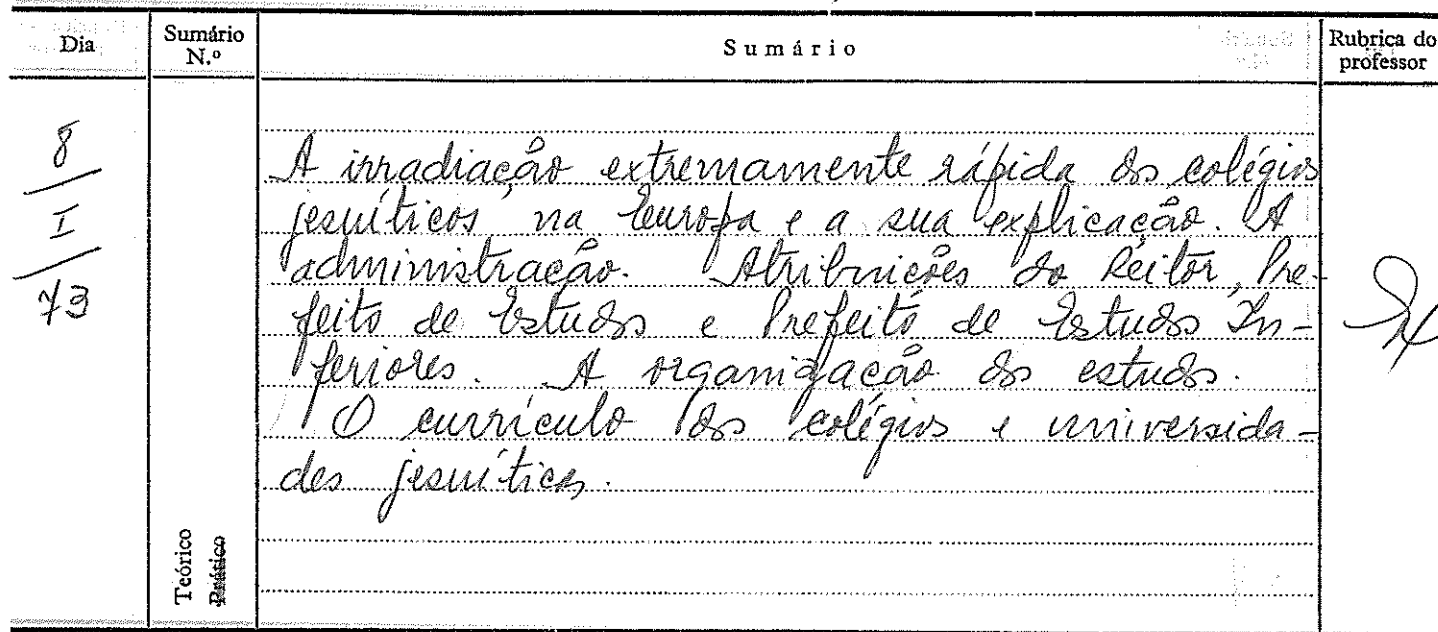 Dia
Sumário
N.º
Sumário
Rubrica do
professor
8
I
73
A irradiação extremamente rápida dos colégios
jesuíticos, na Europa e a sua explicação. A
administração. Atribuições do Reitor, Pre-
feito de Estudos e Prefeito de Estudos In-
feriores. A organização dos estudos.
O currículo dos colégios e universida-
des jesuíticas.
Teórico
Prático